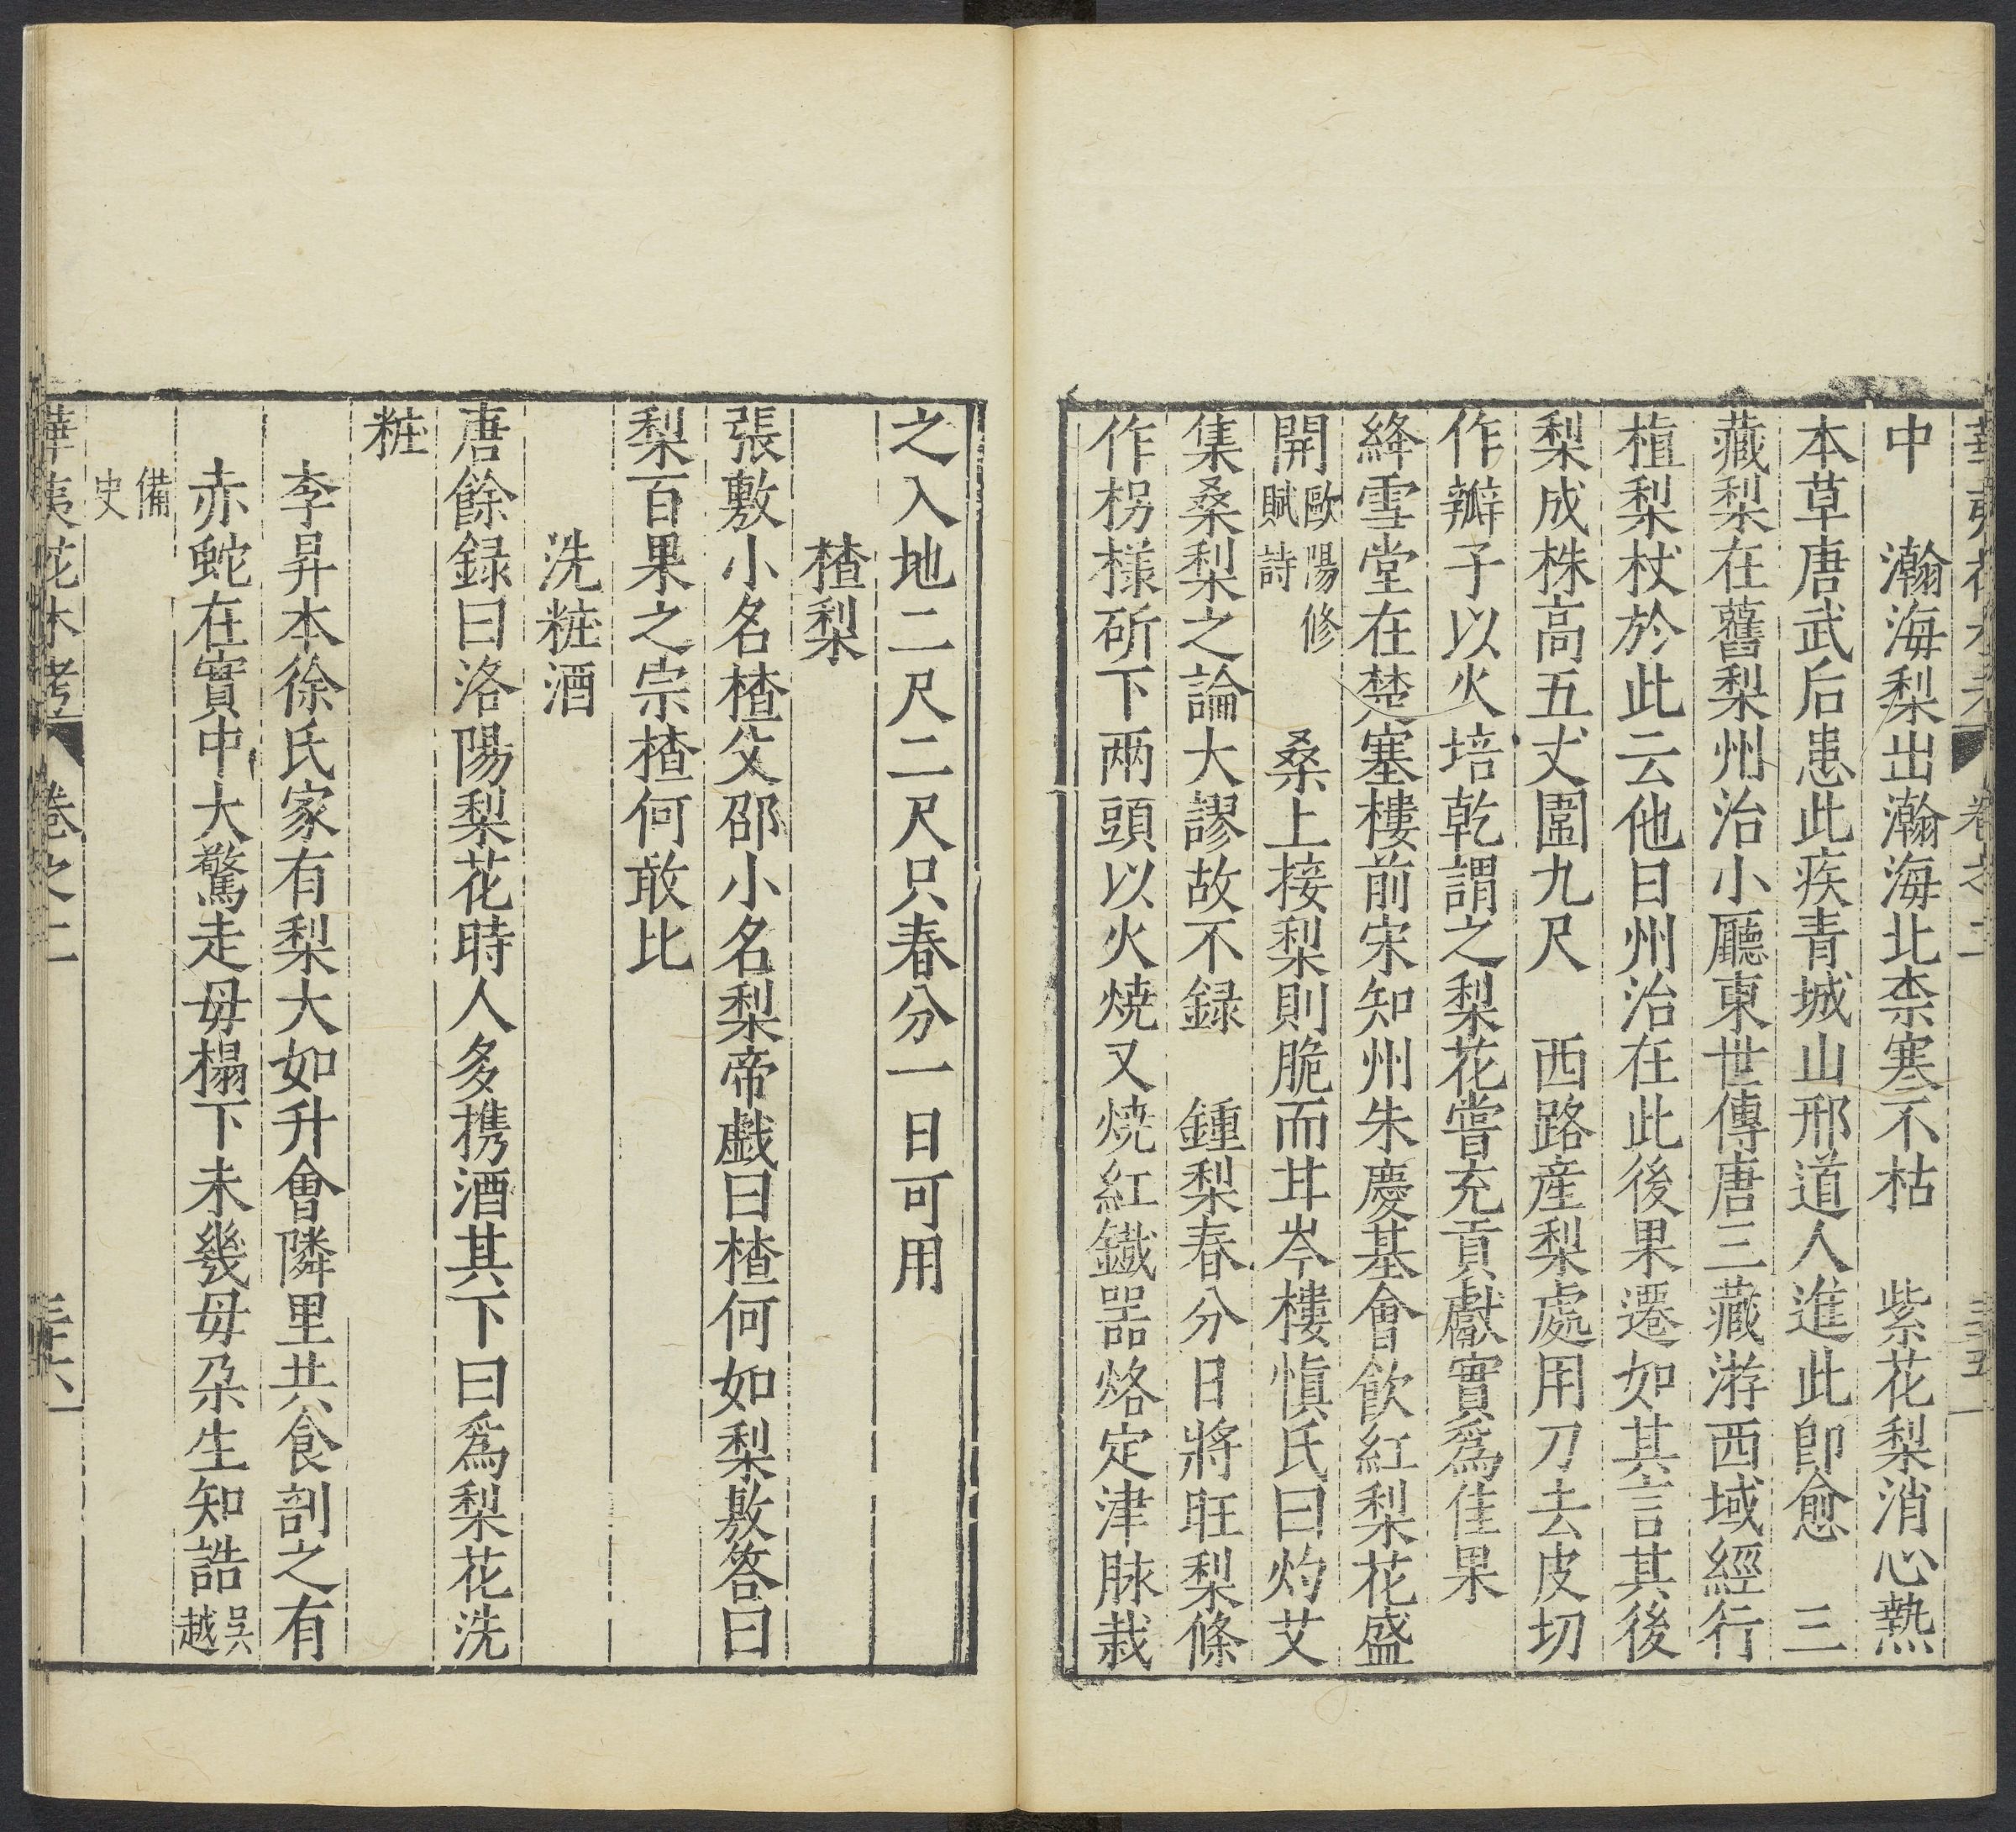 華夷花木考 卷之二 三十五
中　瀚海梨出瀚海北柰寒不枯　紫花梨消心熱
本草唐武后患此疾青城山邢道人進此即愈　三
藏梨在舊梨州治小廳東世傳唐三藏游西域經行
植梨杖於此云他日州治在此後果遷如其言其後
梨成株高五丈圍九尺　西路産梨處用刀去皮切
作瓣子以火培乾謂之梨花嘗充貢獻實爲佳果
絳雪堂在楚塞樓前宋知州朱慶基會飲紅梨花盛
開歐陽修賦詩　桑上接梨則脆而甘岑樓慎氏曰灼艾
集桑梨之論大謬故不録　鍾梨春分日將旺梨條
作枴様斫下兩頭以火燒又燒紅鐵器烙定津脉栽
之入地二尺二尺只春分一日可用
楂梨
張敷小名楂父邵小名梨帝戱曰楂何如梨敷答曰
梨百果之宗楂何敢比
洗粧酒
唐餘録曰洛陽梨花時人多携酒其下曰爲梨花洗
粧
李昪本徐氏家有梨大如升會隣里共食剖之有
赤蛇在實中大驚走毋榻下未幾毋朶生知誥吳越
備史
華夷花木考 卷之二 三十六